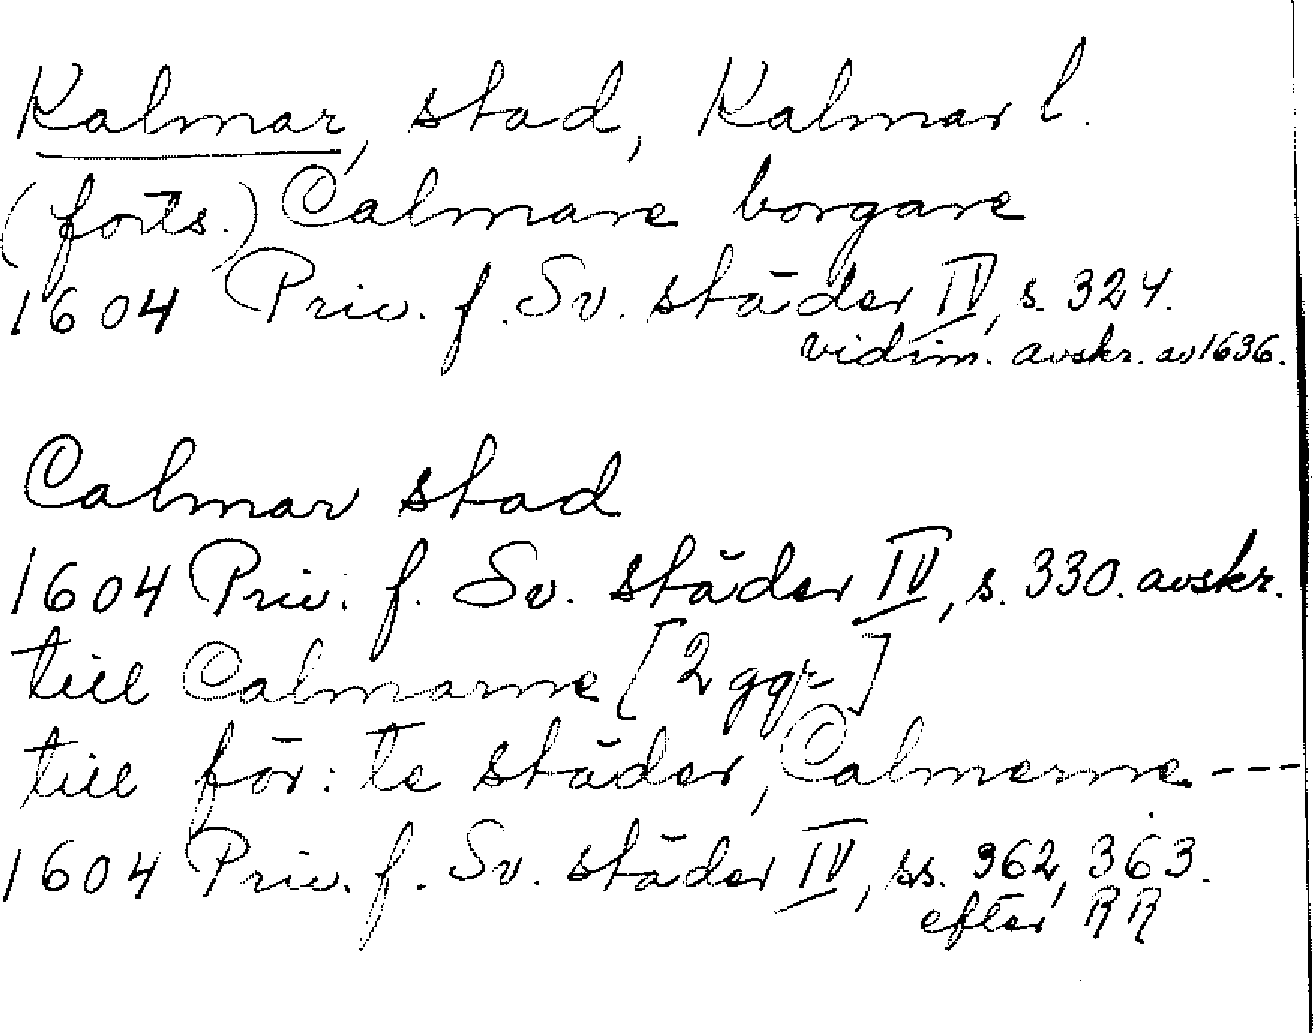 Kalmar, stad, Kalmar l.
(forts.) Calmare borgare
1604 Priv. f. Sv. städer IV, s. 324.
vidim. avskr. av 1636.
Calmar stad
1604 Priv. f. Sv. städer IV, s. 330. avskr.
till Calmarne [2 ggr]
till för:te städer, Calmerne ---
1604 Priv. f. Sv. städer IV, ss. 362, 363.
efter RR